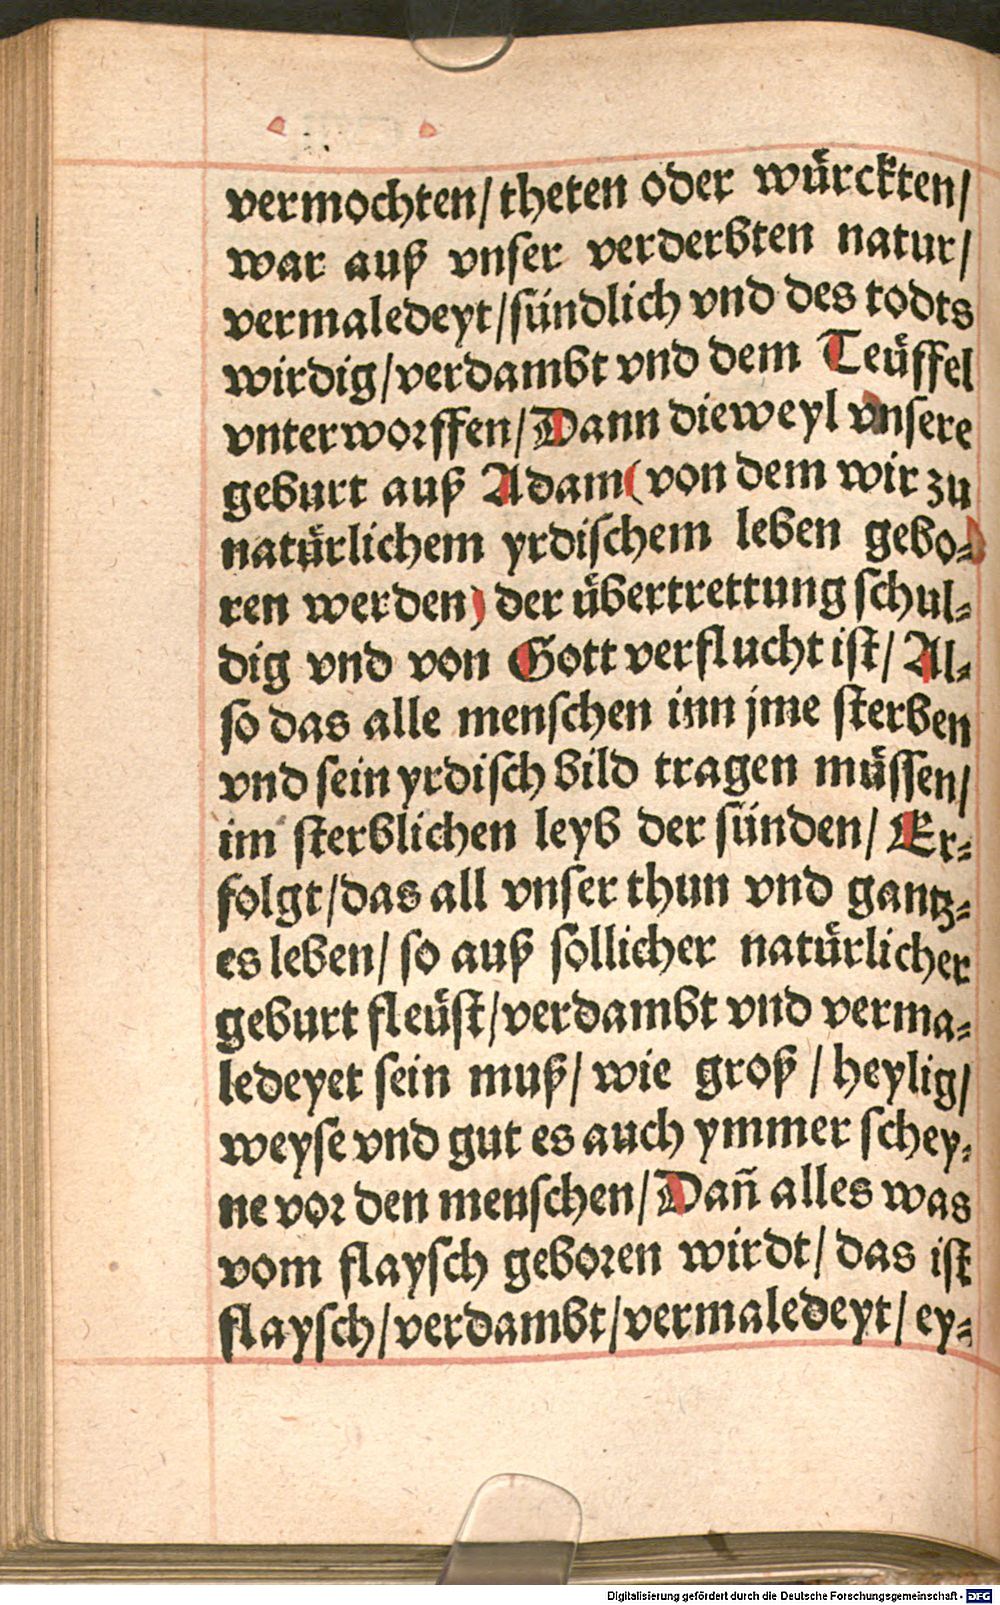 vermochten/ theten oder wuͤrckten/
war auß vnser verderbten natur/
vermaledeyt/ sündlich vnd des todts
wirdig/ verdambt vnd dem Teuͤffel
vnterworffen/ Dann dieweyl vnsere
geburt auß Adam (von dem wir zu
natuͤrlichem yrdischem leben gebo⸗
ren werden) der uͤbertrettung schul⸗
dig vnd von Gott verflucht ist/ Al⸗
so das alle menschen inn jme sterben
vnd sein yrdisch bild tragen muͤssen/
im sterblichen leyb der sünden/ Er⸗
folgt/ das all vnser thun vnd gantz⸗
es leben/ so auß sollicher natuͤrlicher
geburt fleuͤst/ verdambt vnd verma⸗
ledeyet sein muß/ wie groß / heylig/
weyse vnd gut es auch ymmer schey⸗
ne vor den menschen/ Dañ alles was
vom flaysch geboren wirdt/ das ist
flaysch/ verdambt/ vermaledeyt/ ey⸗
Digitalisierung gefördert durch die Deutsche Forschungsgemeinschaft - DFG